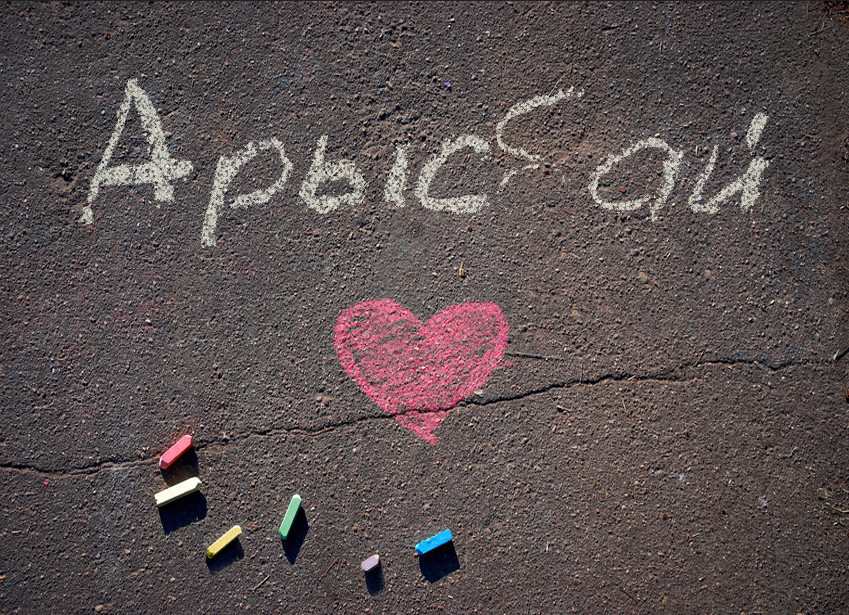 Арысбай